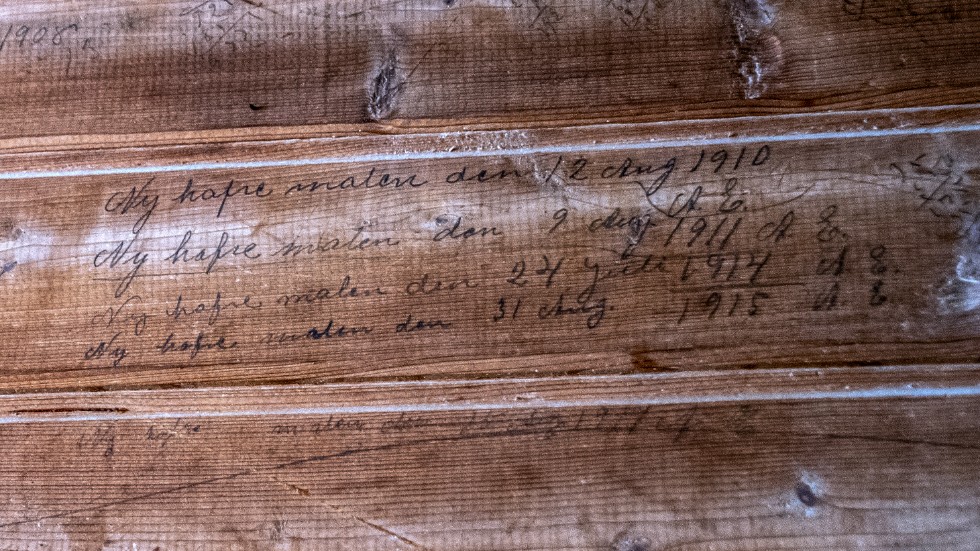 1908
Ny hafre malen den 12 Aug 1910
A E.
Ny hafre malen den 9 Aug 1911 A E.
Ny hafre malen den 24 Juli 1914 A E.
Ny hafre malen den 31 Aug 1915 A E
Ny hafre malen den